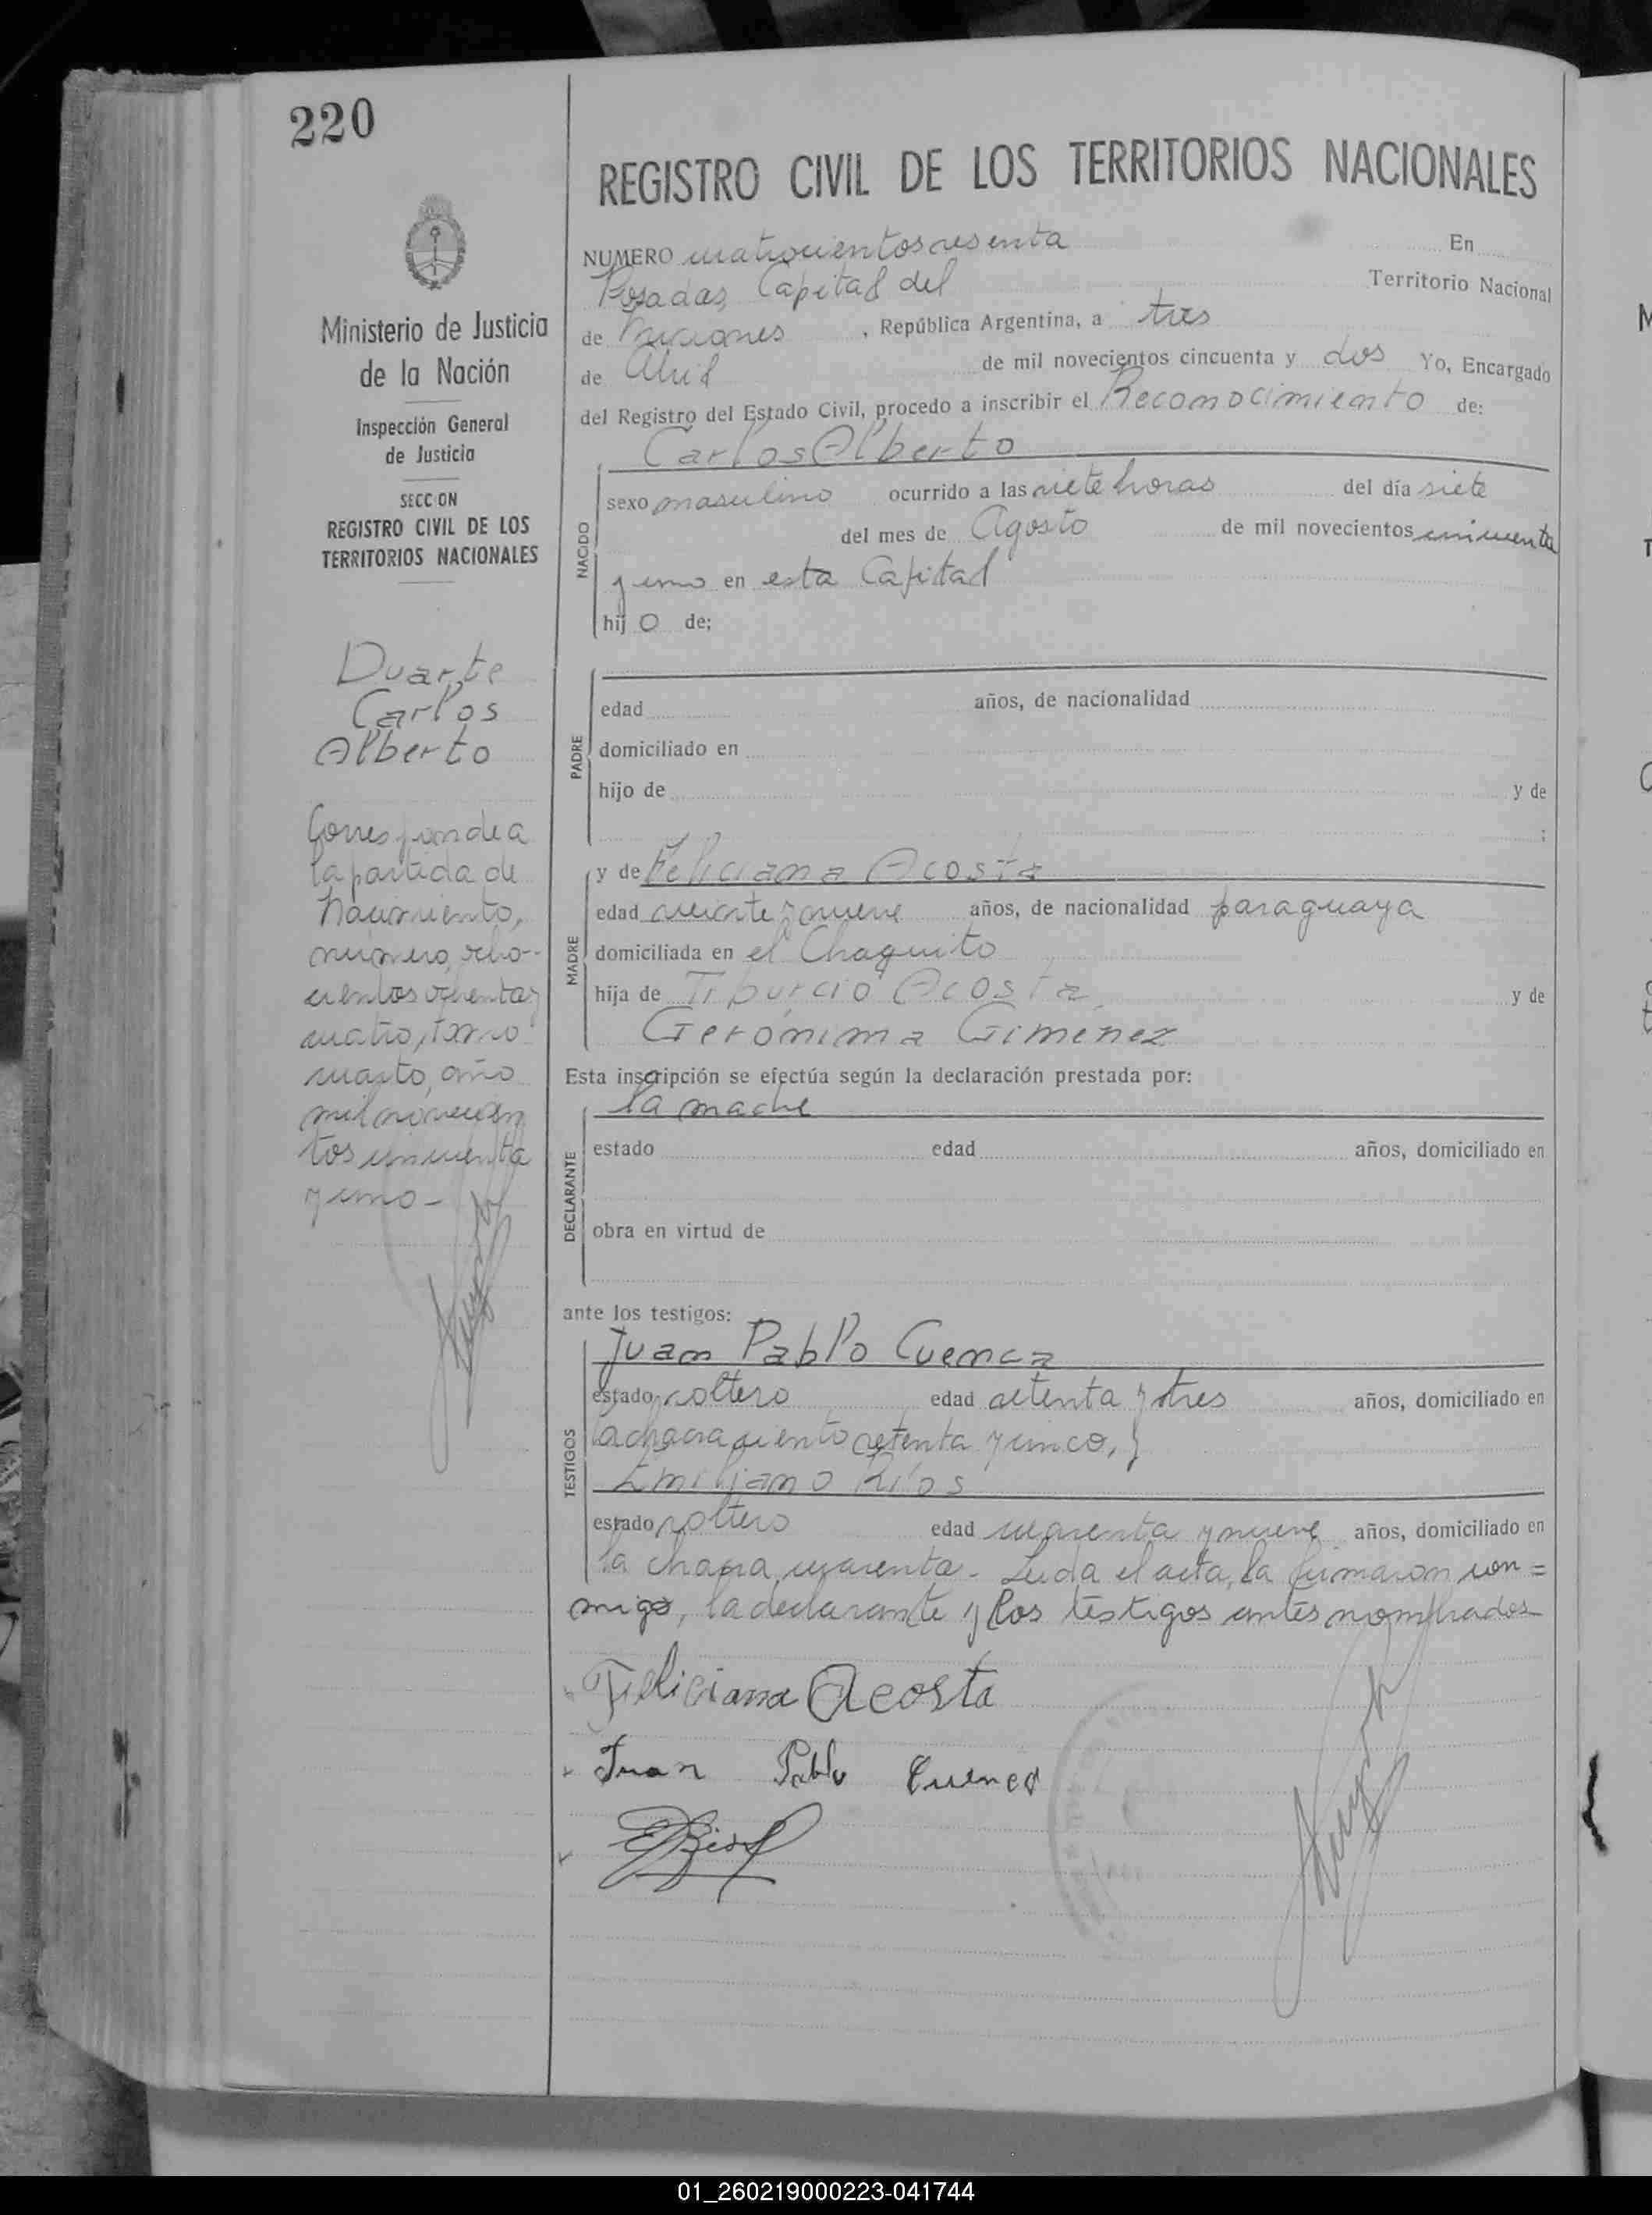 220
Ministerio de Justicia
de la Nación
Inspección General
de Justicia
SECCION
REGISTRO CIVIL DE LOS
TERRITORIOS NACIONALES
Duarte
Carlos
Alberto
Corresponde a
la partida de
Nacimiento,
número ocho-
cientos ochenta y
cuatro, tomo
cuarto, año
mil novecien
tos cincuenta
y uno -
REGISTRO CIVIL DE LOS TERRITORIOS NACIONALES
NUMERO cuatrocientos sesenta En
Posadas, Capital del Territorio Nacional
de Misiones , República Argentina, a tres
de Abril de mil novecientos cincuenta y dos Yo, Encargado
del Registro del Estado Civil, procedo a inscribir el Reconocimiento de:
Carlos Alberto
NACIDO
sexo masculino ocurrido a las siete horas del día siete
del mes de Agosto de mil novecientos cincuenta
y uno en esta Capital
hij o de;
PADRE
edad años, de nacionalidad
domiciliado en
hijo de y de
;
MADRE
y de Feliciana Acosta
edad veinte y nueve años, de nacionalidad paraguaya
domiciliada en el Chaquito
hija de Tiburcio Acosta y de
Gerónima Gimenez
Esta inscripción se efectúa según la declaración prestada por:
la madre
DECLARANTE
estado edad años, domiciliado en
obra en virtud de
ante los testigos:
TESTIGOS
Juan Pablo Cuenca
estado soltero edad setenta y tres años, domiciliado en
la chacra ciento setenta y cinco, y
Emiliano Ríos
estado soltero edad cuarenta y nueve años, domiciliado en
la chacra cuarenta - Leida el acta, la firmaron con=
migo, la declarante y los testigos antes nombrados
Feliciana Acosta
Juan Pablo Cuenca
01_260219000223-041744